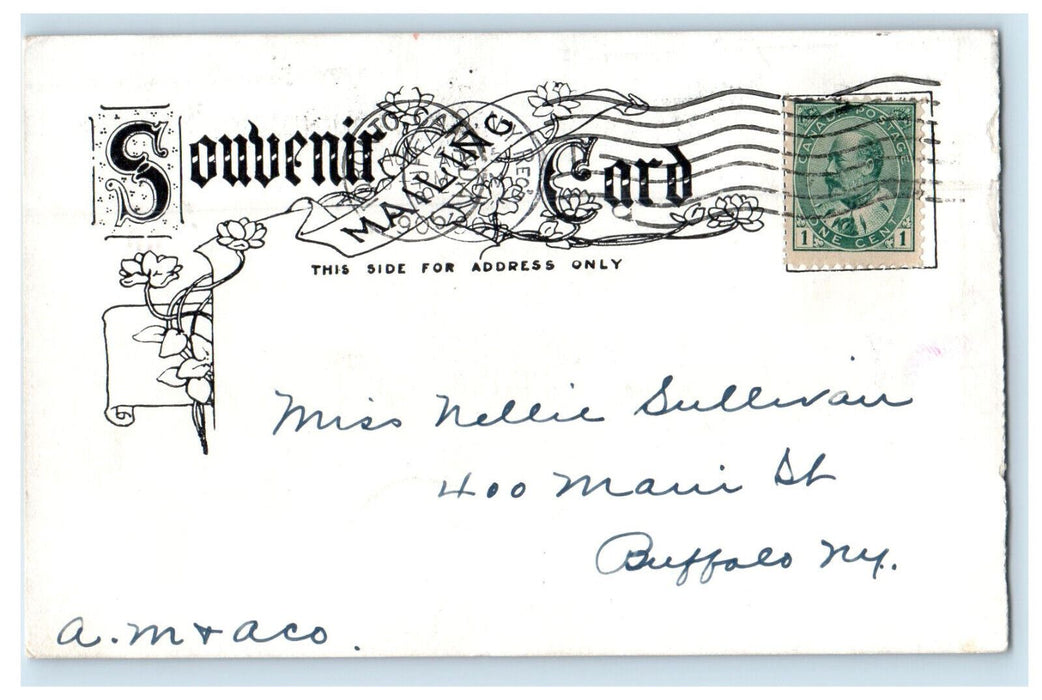 Souvenir Card
MAILING
THIS SIDE FOR ADDRESS ONLY
CANADA POSTAGE
1 ONE CENT 1
Miss Nellie Sullivan
400 Main St
Buffalo Ny.
a. m & a co.